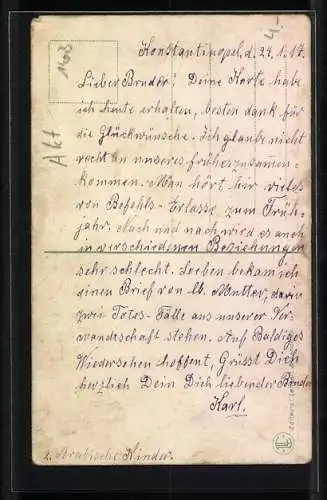 4.-
1403
Akt
Konstantinopel, d. 24.1.17.
Lieber Bruder! Deine Karte habe
ich heute erhalten, besten dank für
die Glückwünsche. Ich glaube nicht
recht an unseres früheszusammen-
kommen. Man hört hir vieles
von Befehls-Erlasse zum Früh-
jahr. Nach und nach wird es auch
in verschiedenen Beziehungen
sehr schlecht. Soeben bekam ich
einen Brief von lb. Mutter, darin
zwei Totes-Fälle aus unserer Ver-
wandschaft stehen. Auf Baldiges
Wiedersehen hoffent, Grüsst Dich
herzlich Dein Dich liebender Bruder
Karl.
2. Arabische Kinder.